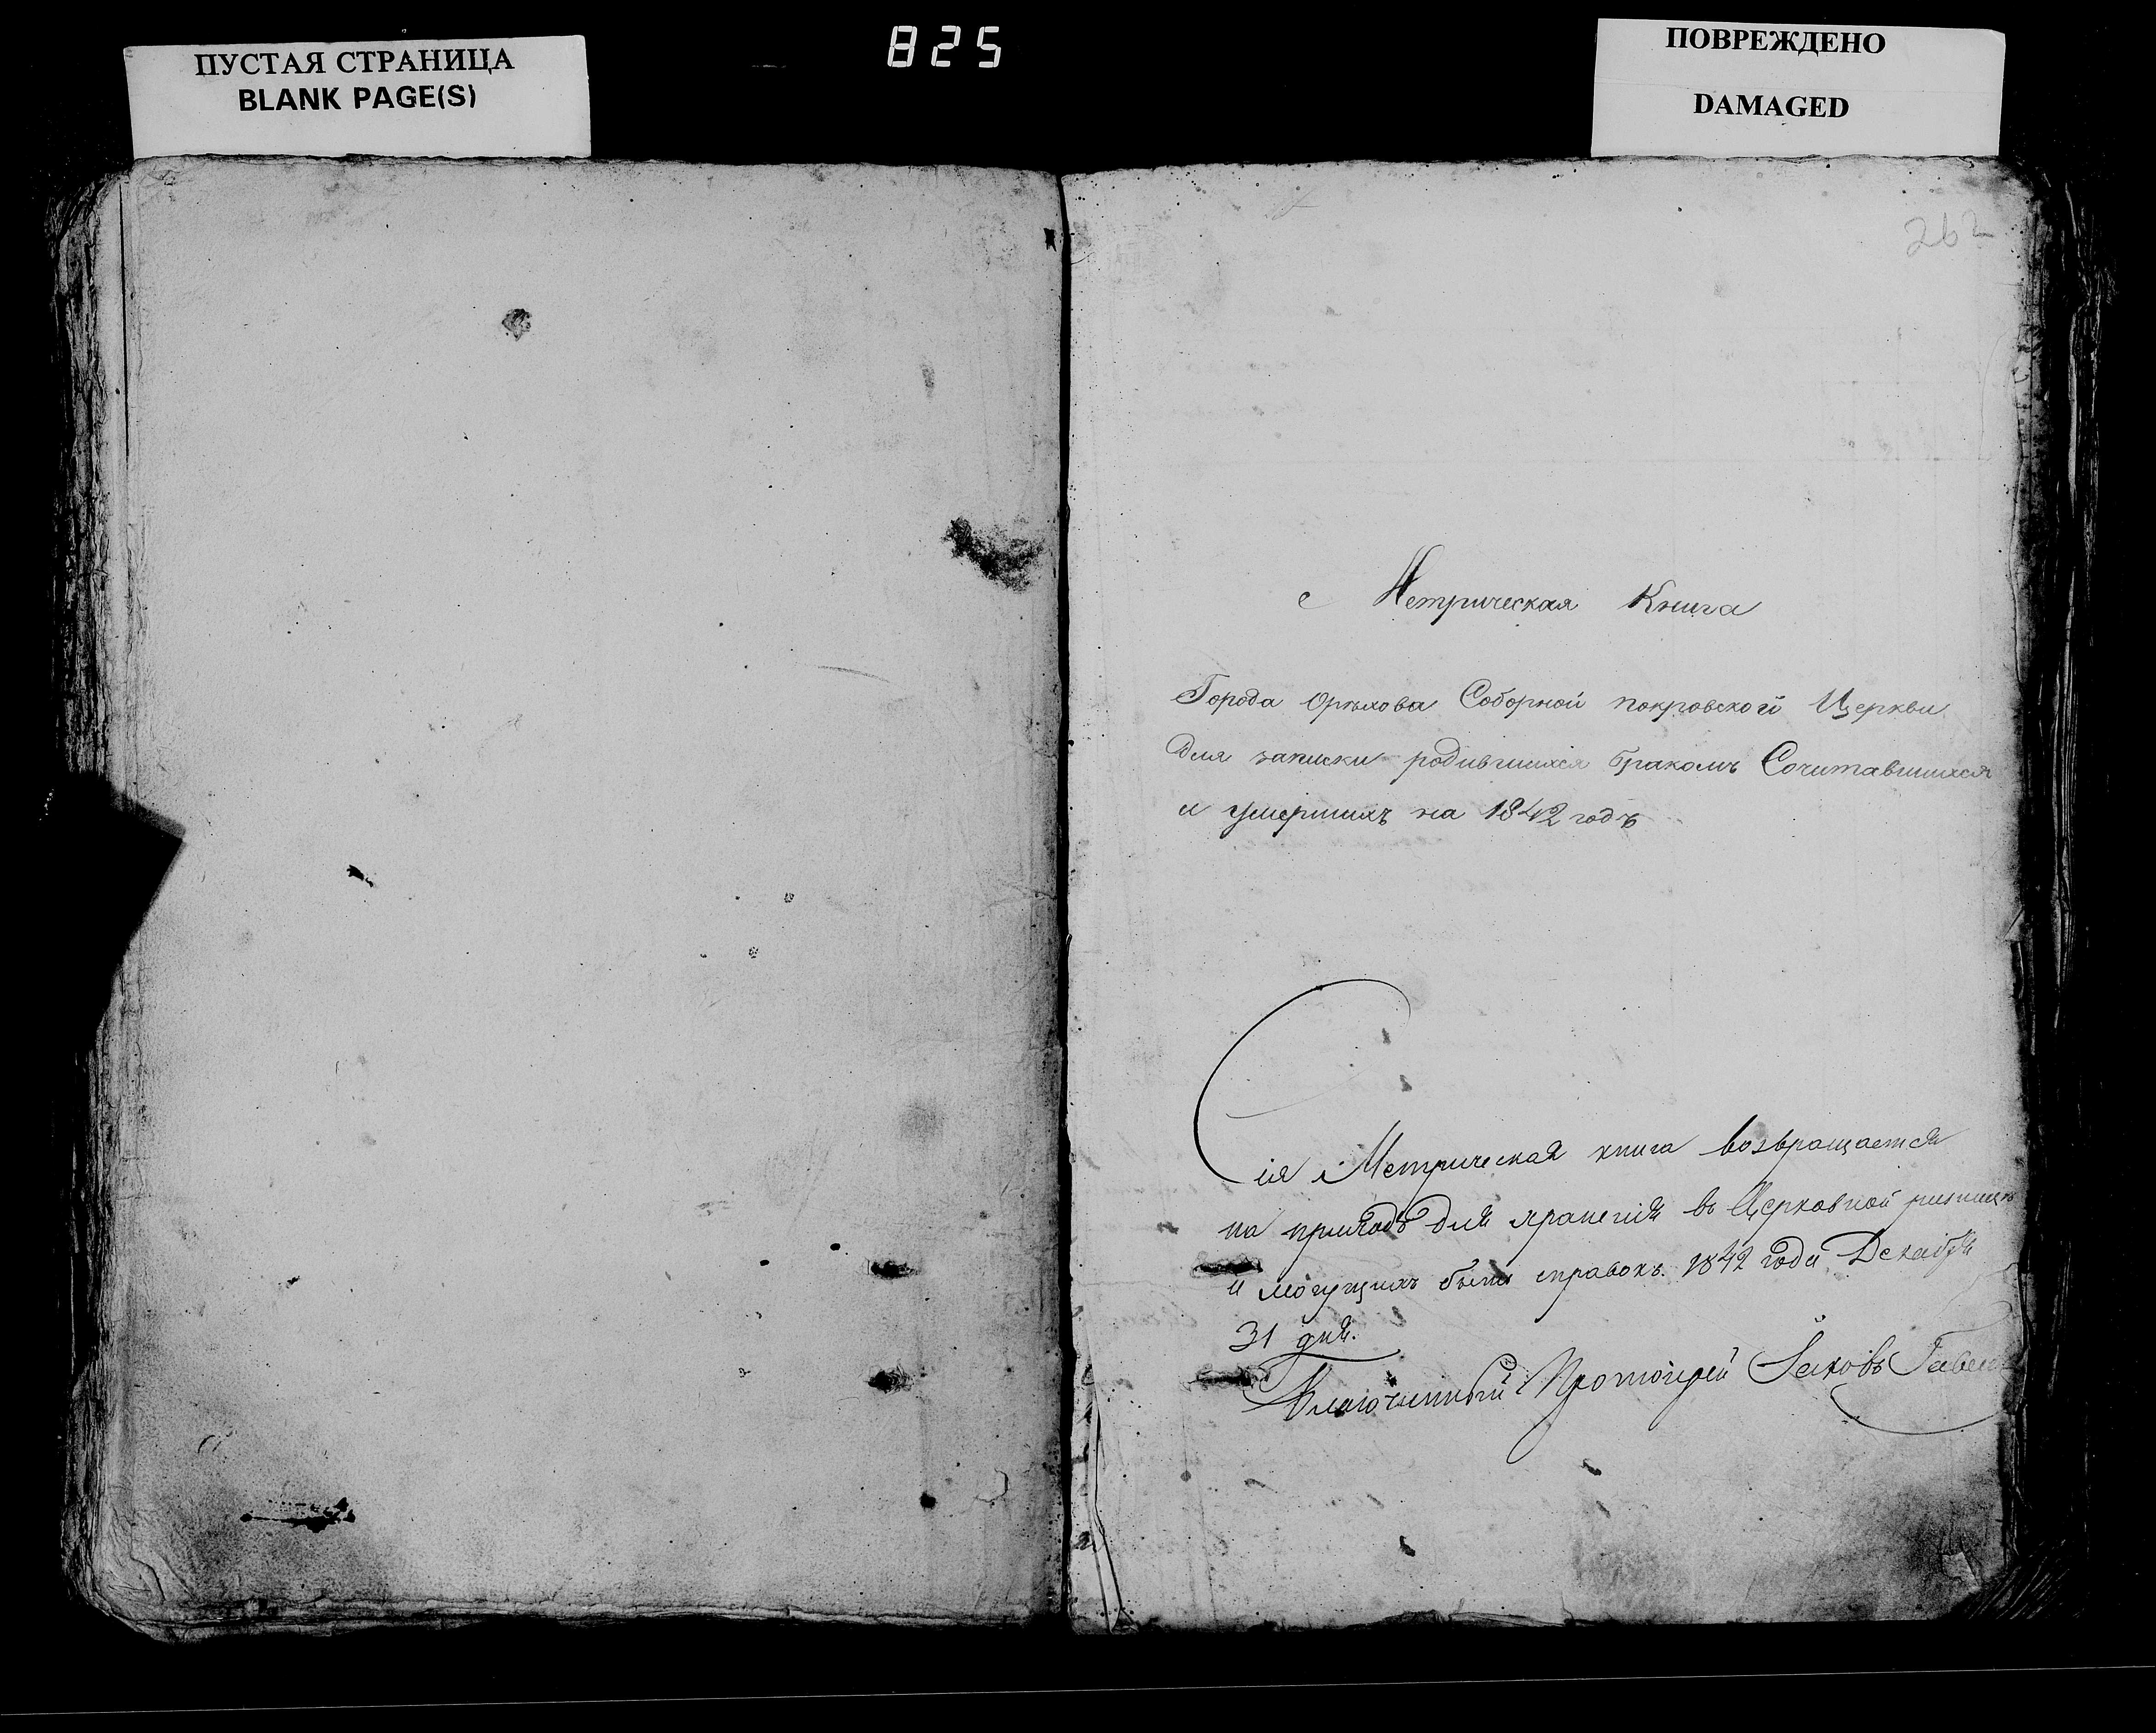 ПУСТАЯ СТРАНИЦА
BLANK PAGE(S)
825
ПОВРЕЖДЕНО
DAMAGED
262
Метрическая Книга
Города Орѣхова Соборной покровской Церкви
для записки родившихся бракомъ Сочитавшихся
и умершихъ на 1842 годъ
Сія Метрическая книга возвращается
на приходъ для храненія въ Церковной ризницѣ
и могущихъ быть справокъ. 1842 года Декабря
31 дня.
Благочинный Протоіерей Іаковъ